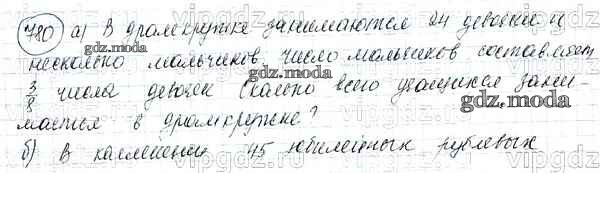 780 а) В драмкружке занимаются 24 девочки и
несколько мальчиков. Число мальчиков составляет
3/8 числа девочек. Сколько всего учащихся зани-
мается в драмкружке?
б) В коллекции 45 юбилейных рублевых
gdz.moda
gdz.moda
gdz.moda
gdz.moda
vipgdz
vipgdz.